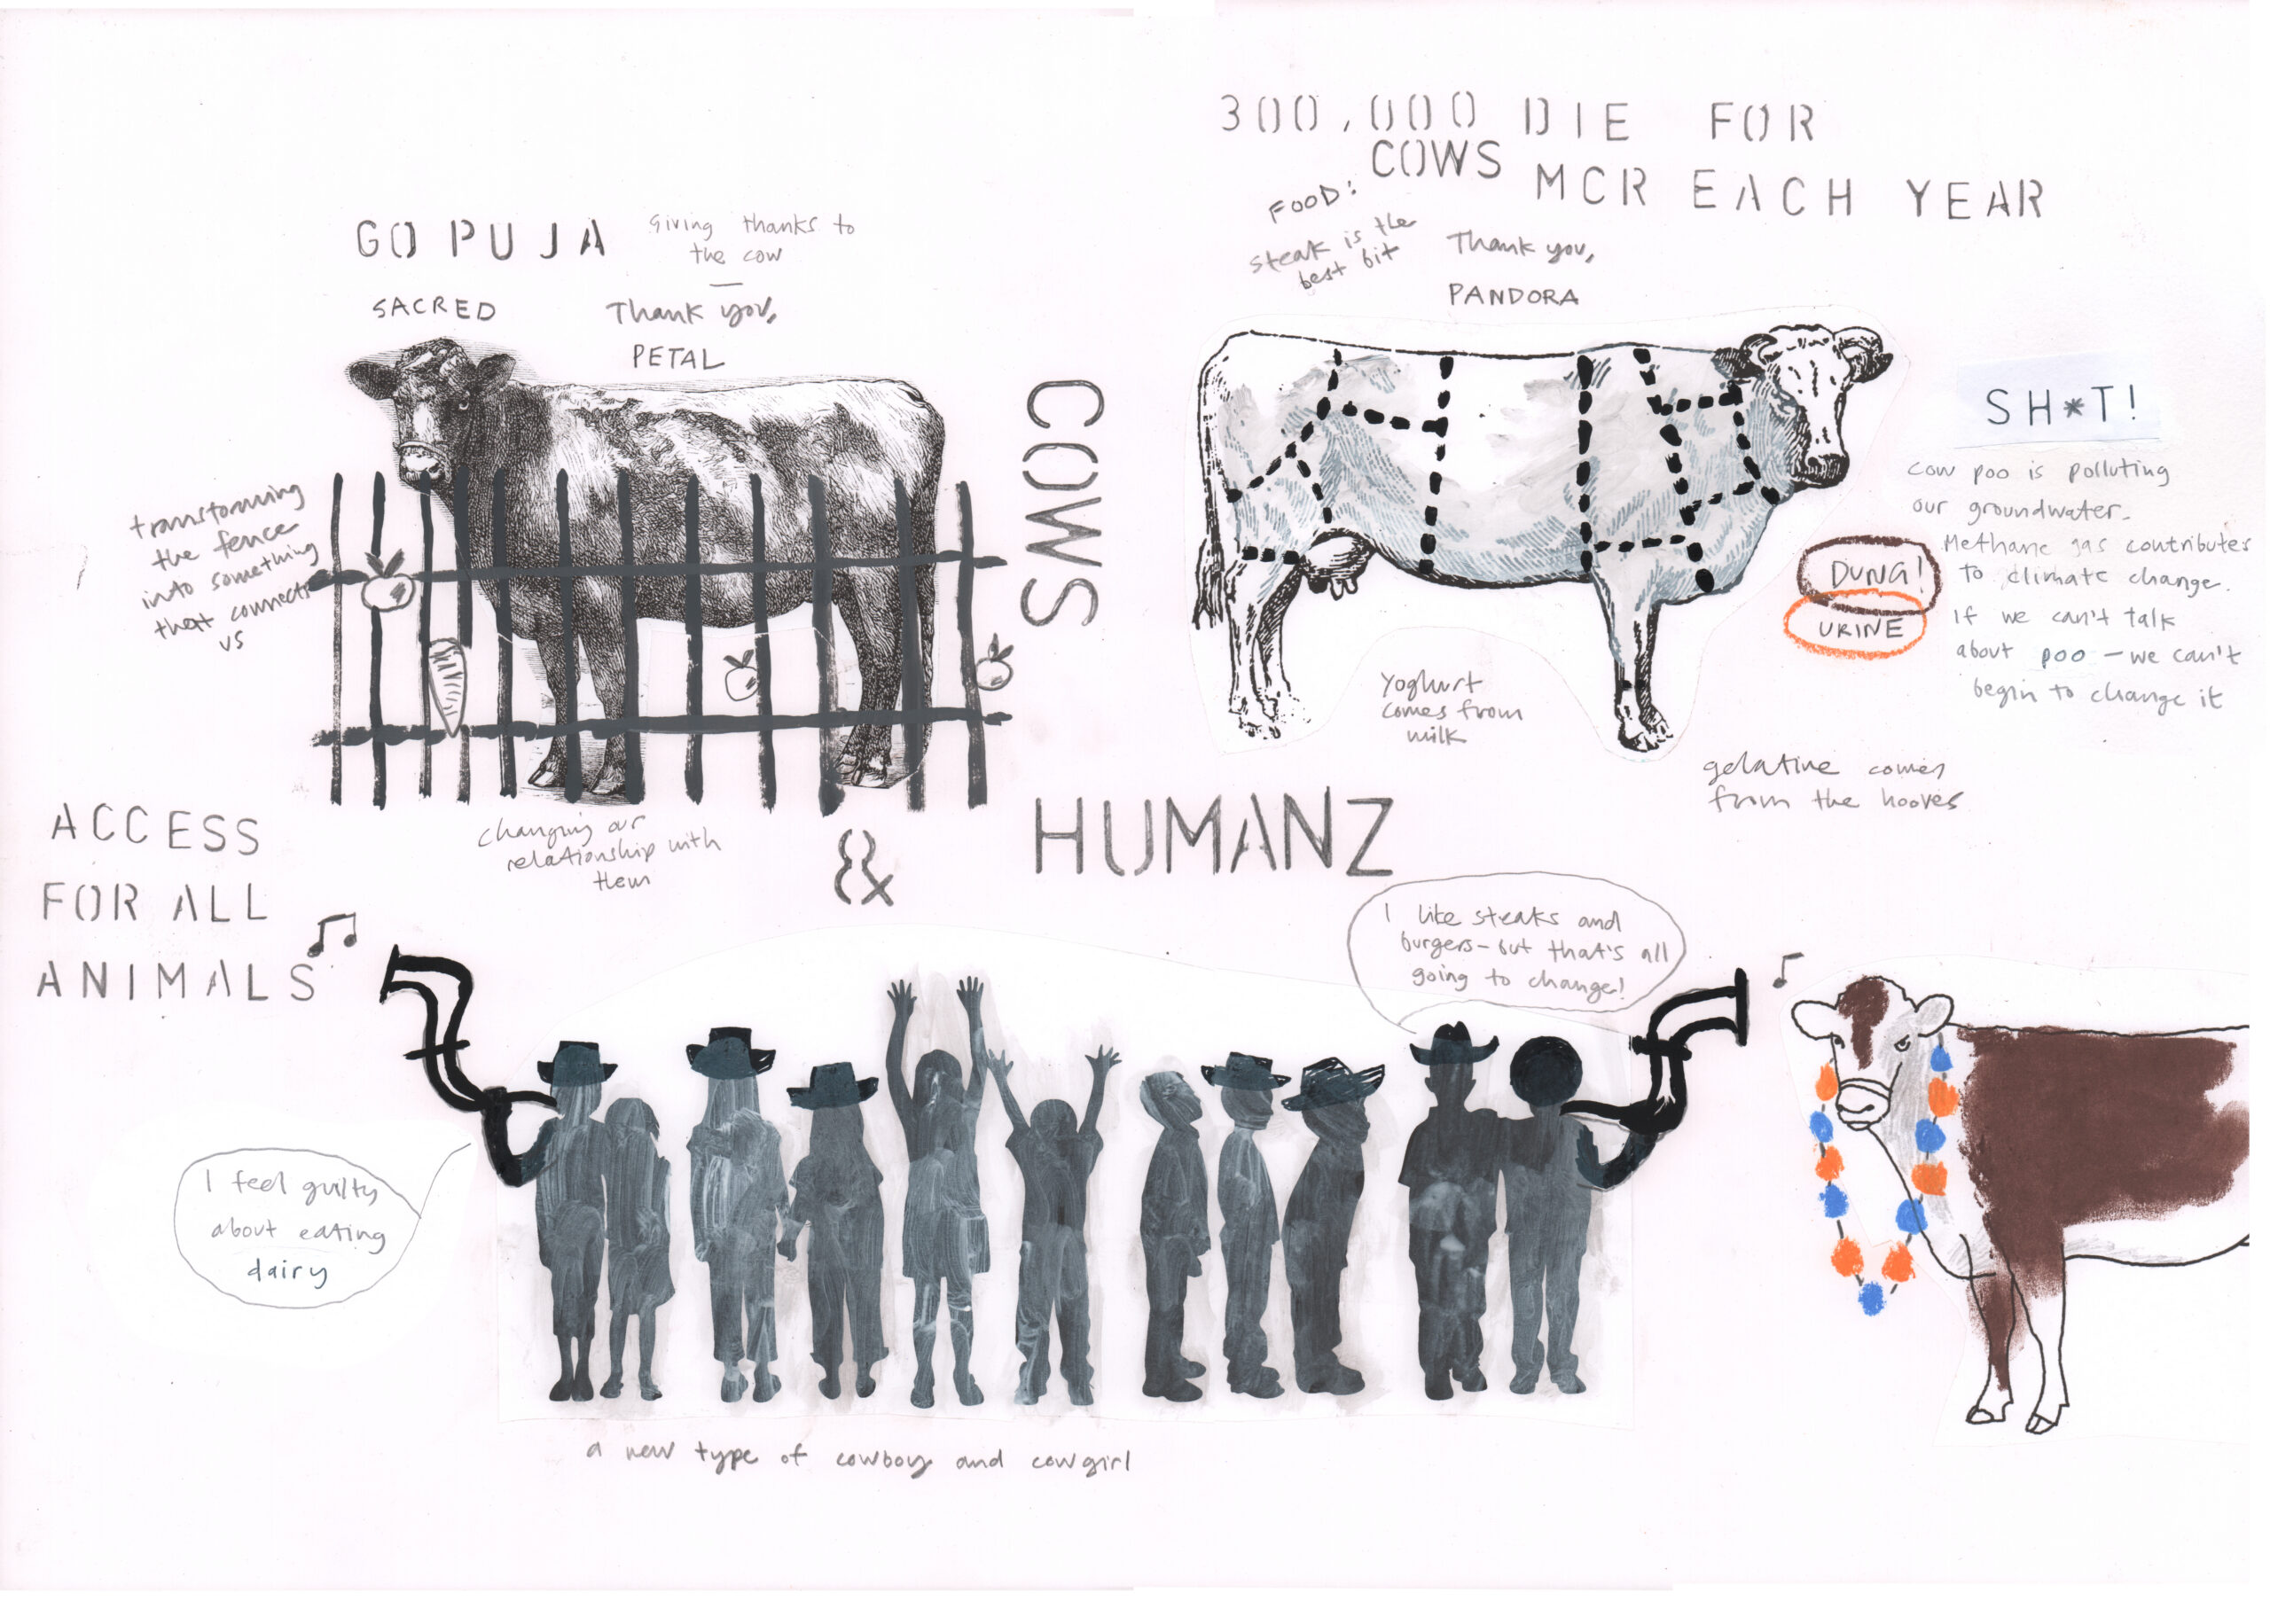 300,000 DIE FOR
COWS
MCR EACH YEAR
FOOD:
steak is the
best bit
Thank you,
PANDORA
GO PUJA
Giving thanks to
the cow
SACRED
Thank you,
PETAL
transforming
the fence
into something
that connects
us
COWS
SH*T!
cow poo is polluting
our groundwater.
Methane gas contributes
to climate change.
If we can't talk
about poo – we can't
begin to change it
DUNG!
URINE
Yoghurt
comes from
milk
gelatine comes
from the hooves
ACCESS
FOR ALL
ANIMALS
changing our
relationship with
them
&
HUMANZ
I like steaks and
burgers – but that's all
going to change!
I feel guilty
about eating
dairy
a new type of cowboy and cowgirl